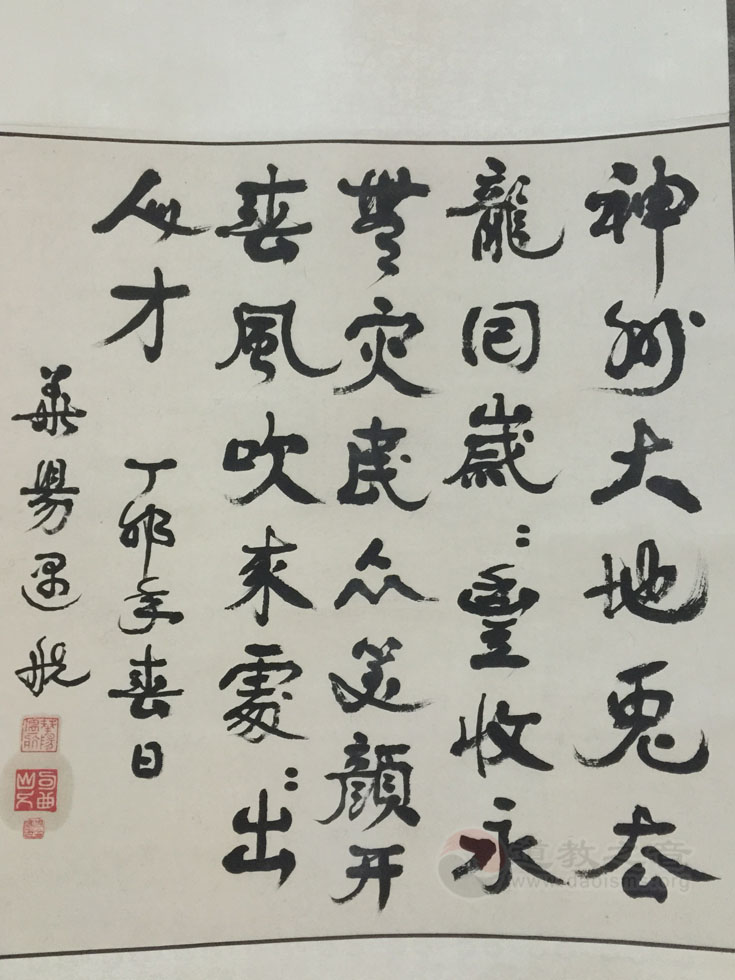 神州大地兔去
龍回歲：豐收永
無灾民众笑顏开
春風吹來處：出
人才 丁卯年春日
華陽
道教之音
www.daoisms.org